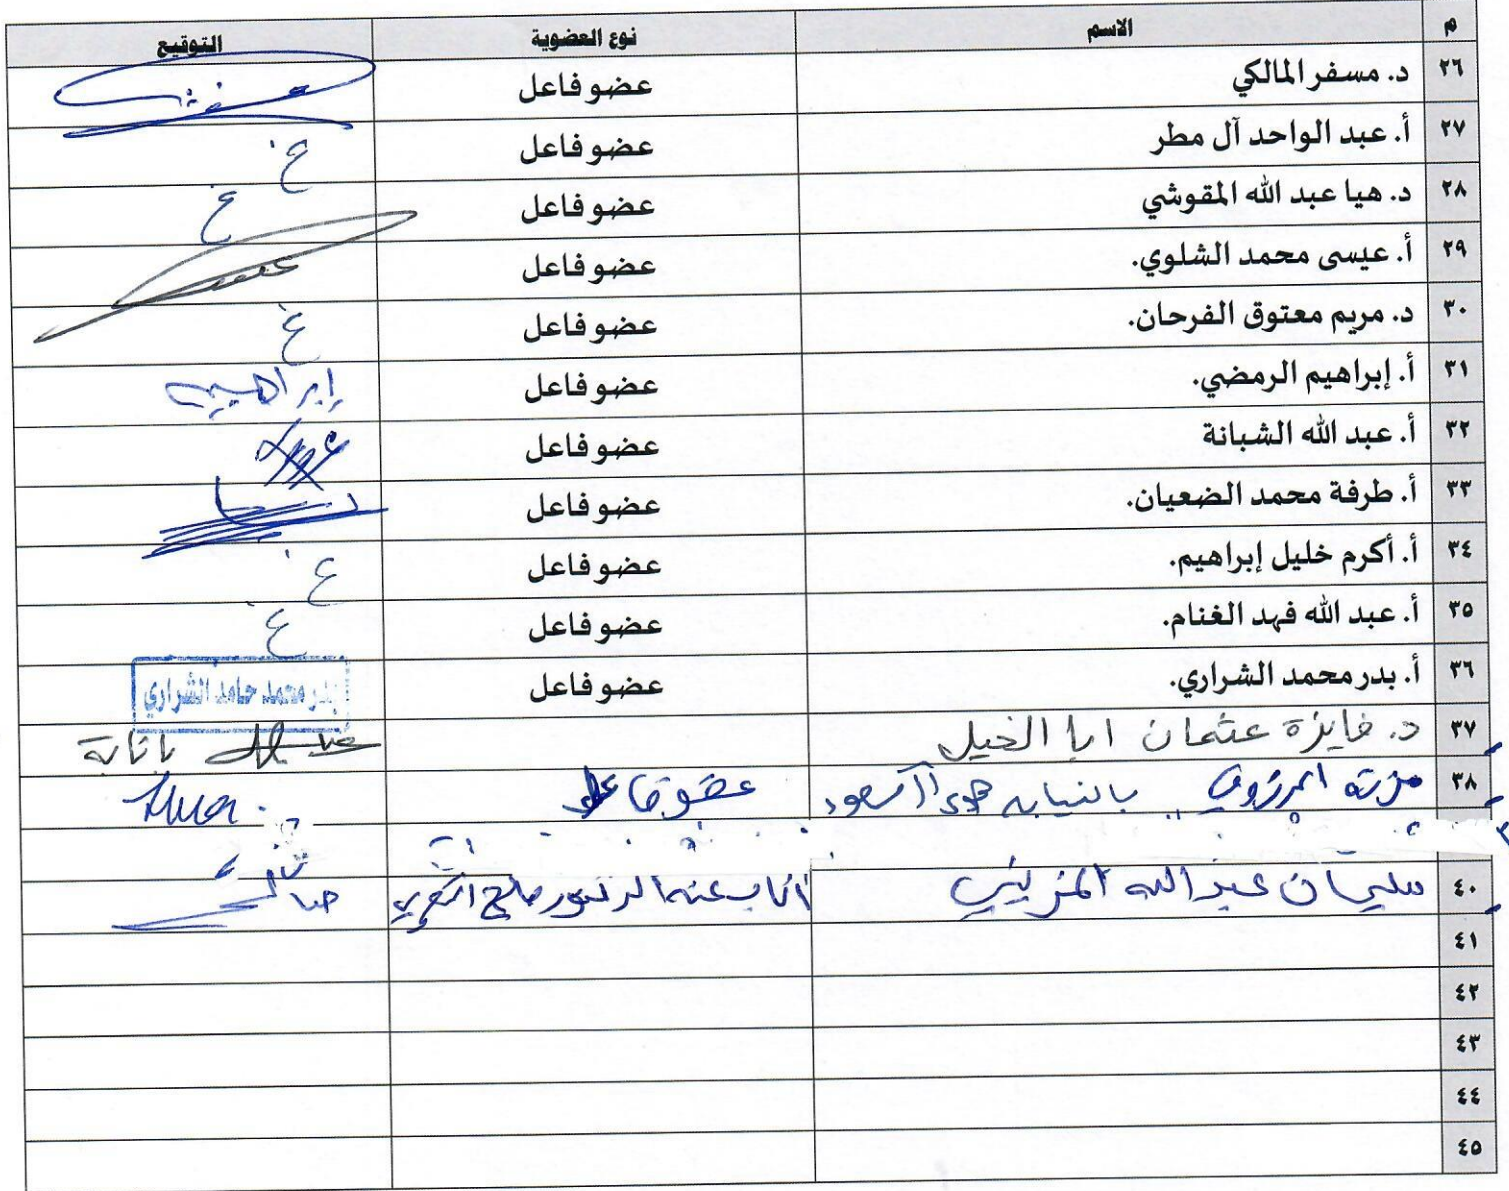 م الاسم نوع العضوية التوقيع
٢٦ د. مسفر المالكي عضو فاعل
٢٧ أ. عبد الواحد آل مطر عضو فاعل غ
٢٨ د. هيا عبد الله المقوشي عضو فاعل غ
٢٩ أ. عيسى محمد الشلوي. عضو فاعل
٣٠ د. مريم معتوق الفرحان. عضو فاعل غ
٣١ أ. إبراهيم الرمضي. عضو فاعل إبراهيم
٣٢ أ. عبد الله الشبانة عضو فاعل
٣٣ أ. طرفة محمد الضعيان. عضو فاعل
٣٤ أ. أكرم خليل إبراهيم. عضو فاعل غ
٣٥ أ. عبد الله فهد الغنام. عضو فاعل غ
٣٦ أ. بدر محمد الشراري. عضو فاعل بدر محمد حامد الشراري
٣٧ د. فايزة عثمان ابا الخيل
٣٨ بالنيابه عضو فاعل
٤٠ سليمان عبدالله المزيني اناب عنه الدكتور صالح
٤١
٤٢
٤٣
٤٤
٤٥